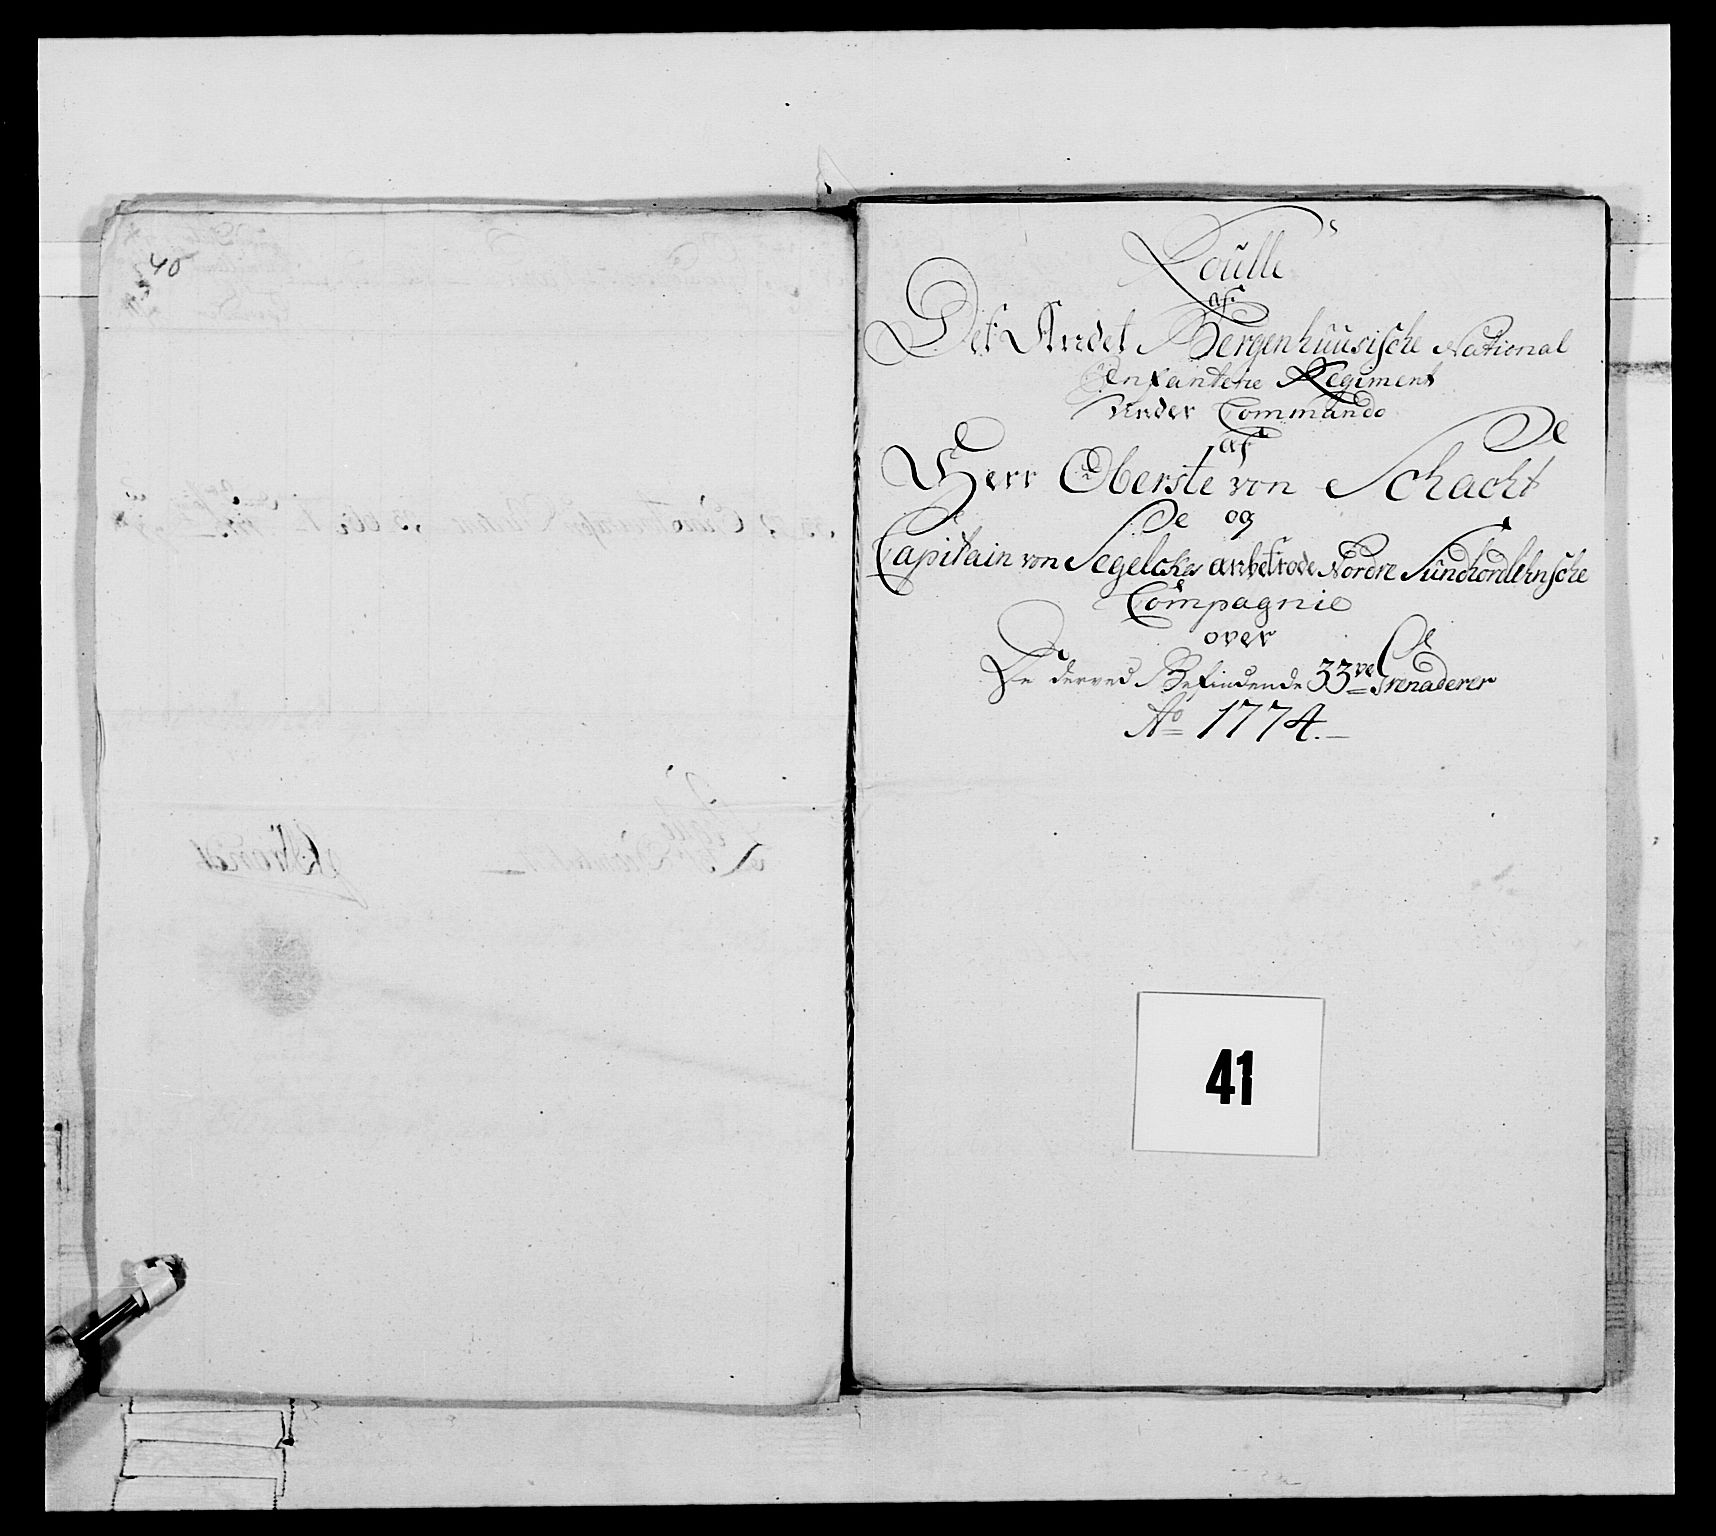 40
Roulle
af
Det Andet Bergenhuusische National
Infanterie Regiment
Under Commando
af
Herr Oberste von Schacht
og
Capitain von Segelckes anbetrode Nordre Sündhordlehnsche
Compagnie
over
De derved Befindende 33ve Grenaderer
Ao 1774.
41